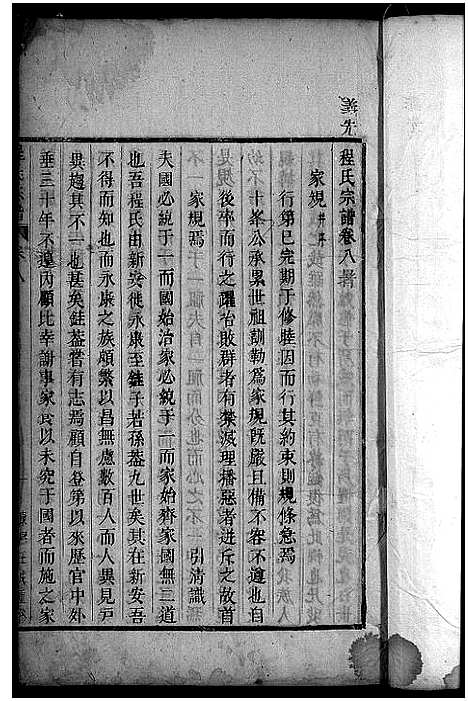 義先
程氏宗譜卷八著
家規 并序
行第已定期于修睦因而行其約束則規條急焉
十峯公承累世祖訓勒為家規既嚴且備不容不遵也自
後卒而行之躍冶敗群者有禁滅理播惡者迸斥之故首
家規焉
引清識
夫國必統于一而國始治家必統于一而家始齊家國無三道
也吾程氏由新安徙永康至雖子若孫蓋九世矣其在新安吾
不得而知也而永康之族頗繁以昌無慮數百人而人異見戶
異趨其不一也甚矣銈蓋嘗有志焉顧自登第以來歷官中外
垂三十年不遑內顧比幸謝事家食以未究于國者而施之家